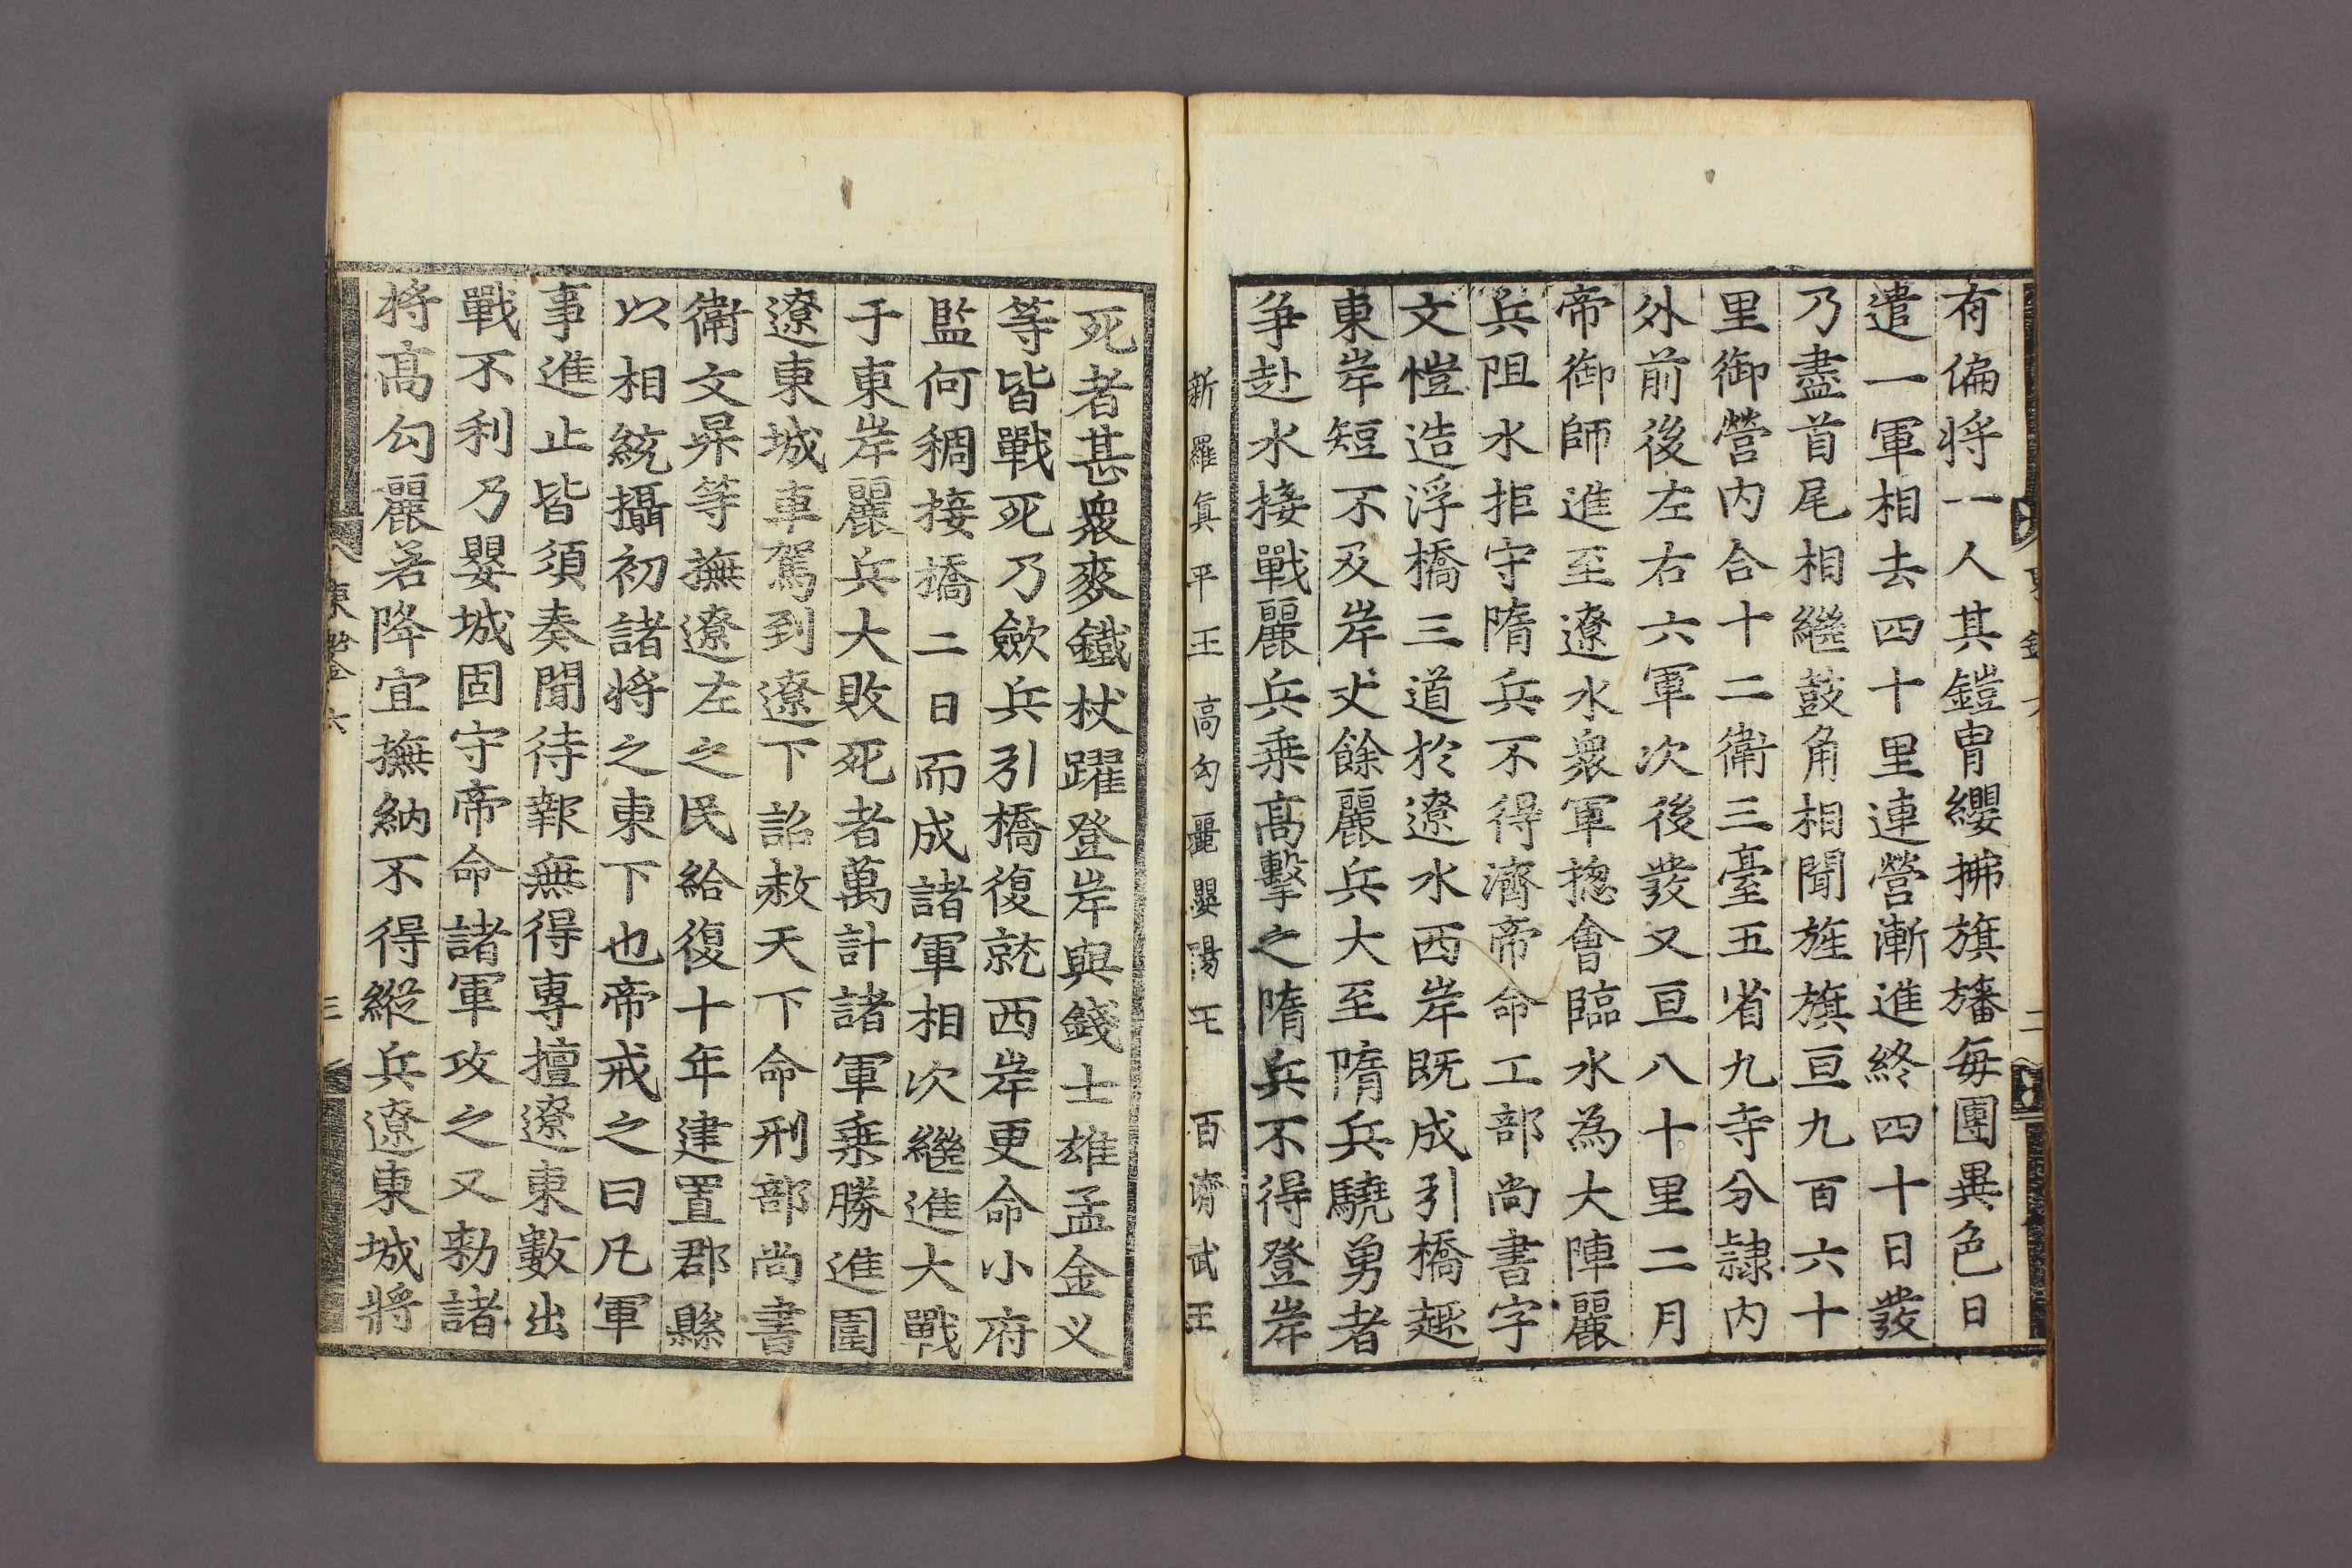 有偏将一人其鎧冑纓拂旗旛每團異色日
遣一軍相去四十里連營漸進終四十日發
乃盡首尾相繼鼓角相聞旌旗亘九百六十
里御營內合十二衛三臺五省九寺分隷內
外前後左右六軍次後發又亘八十里二月
帝御師進至遼水衆軍揔會臨水為大陣麗
兵阻水拒守隋兵不得濟帝命工部尚書宇
文愷造浮橋三道於遼水西岸既成引橋趣
東岸短不及岸丈餘麗兵大至隋兵驍勇者
爭赴水接戰麗兵乗高擊之隋兵不得登岸
新羅眞平王 高勾麗嬰陽王 百濟武王
死者甚衆麥鐵杖躍登岸與錢士雄孟金义
等皆戰死乃斂兵引橋復就西岸更命小府
監何稠接橋二日而成諸軍相次繼進大戰
于東岸麗兵大敗死者萬計諸軍乗勝進圍
遼東城車駕到遼下詔赦天下命刑部尚書
衛文昇等撫遼左之民給復十年建置郡縣
以相統攝初諸将之東下也帝戒之曰凡軍
事進止皆須奏聞待報無得專擅遼東數出
戰不利乃嬰城固守帝命諸軍攻之又勅諸
将高勾麗若降宜撫納不得縱兵遼東城將
東鑑六 三